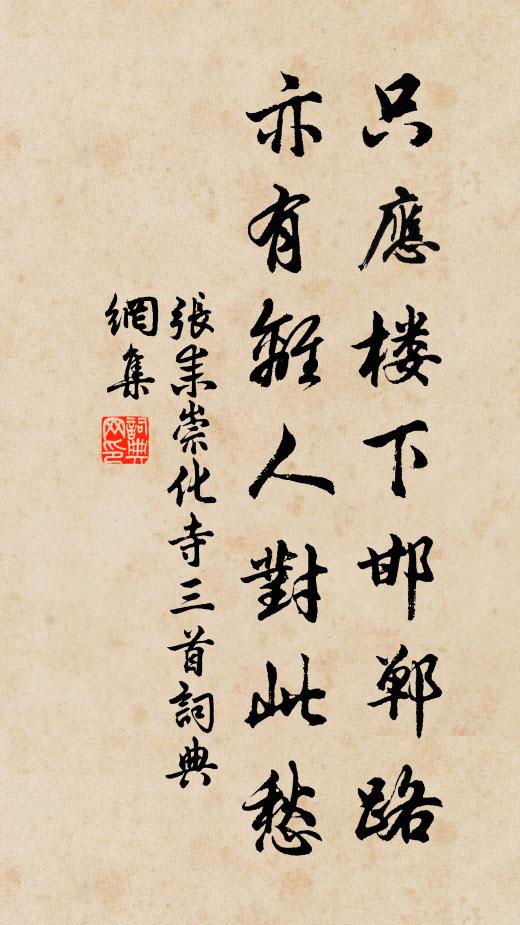 只應楼下邯鄲路
亦有離人對此愁
張耒崇化寺三首詞典
網集
詞典網印